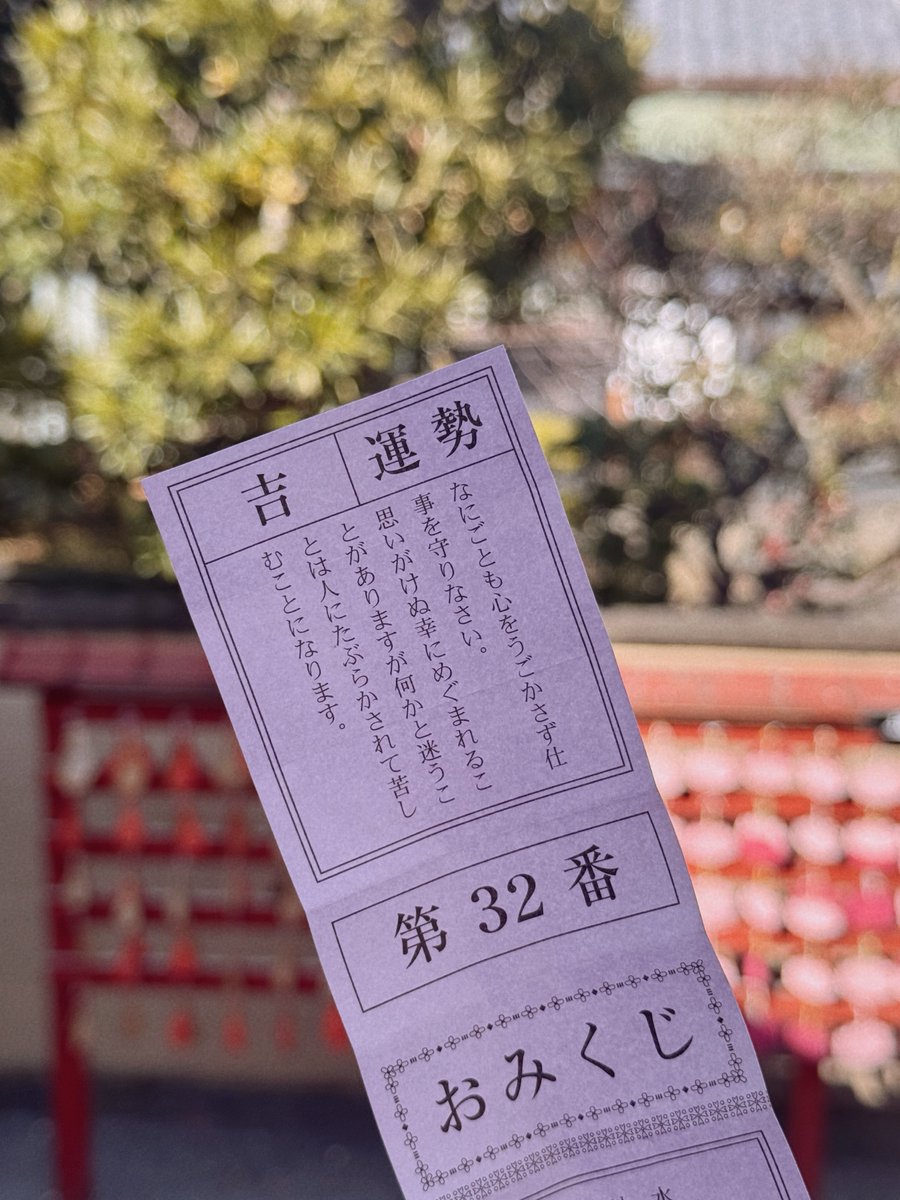 運勢
吉
なにごとも心をうごかさず仕
事を守りなさい。
思いがけぬ幸にめぐまれるこ
とがありますが何かと迷うこ
とは人にたぶらかされて苦し
むことになります。
第32番
おみくじ
水